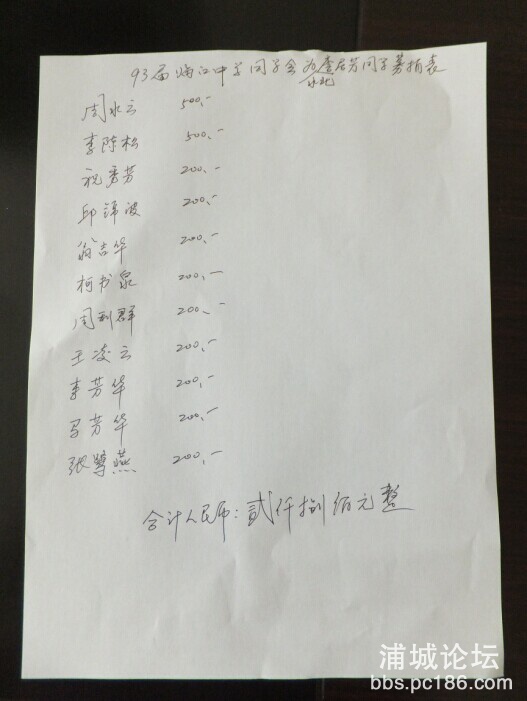 93届 中学同学会为 同学募捐表
周水云 500.-
李陈松 500.-
祝秀芳 200.-
邱 波 200.-
翁吉华 200.-
柯书泉 200.-
周 群 200.-
王凌云 200.-
李芳华 200.-
芳华 200.-
张 燕 200.-
合计人民币:贰仟捌佰元整
浦城论坛
bbs.pc186.com